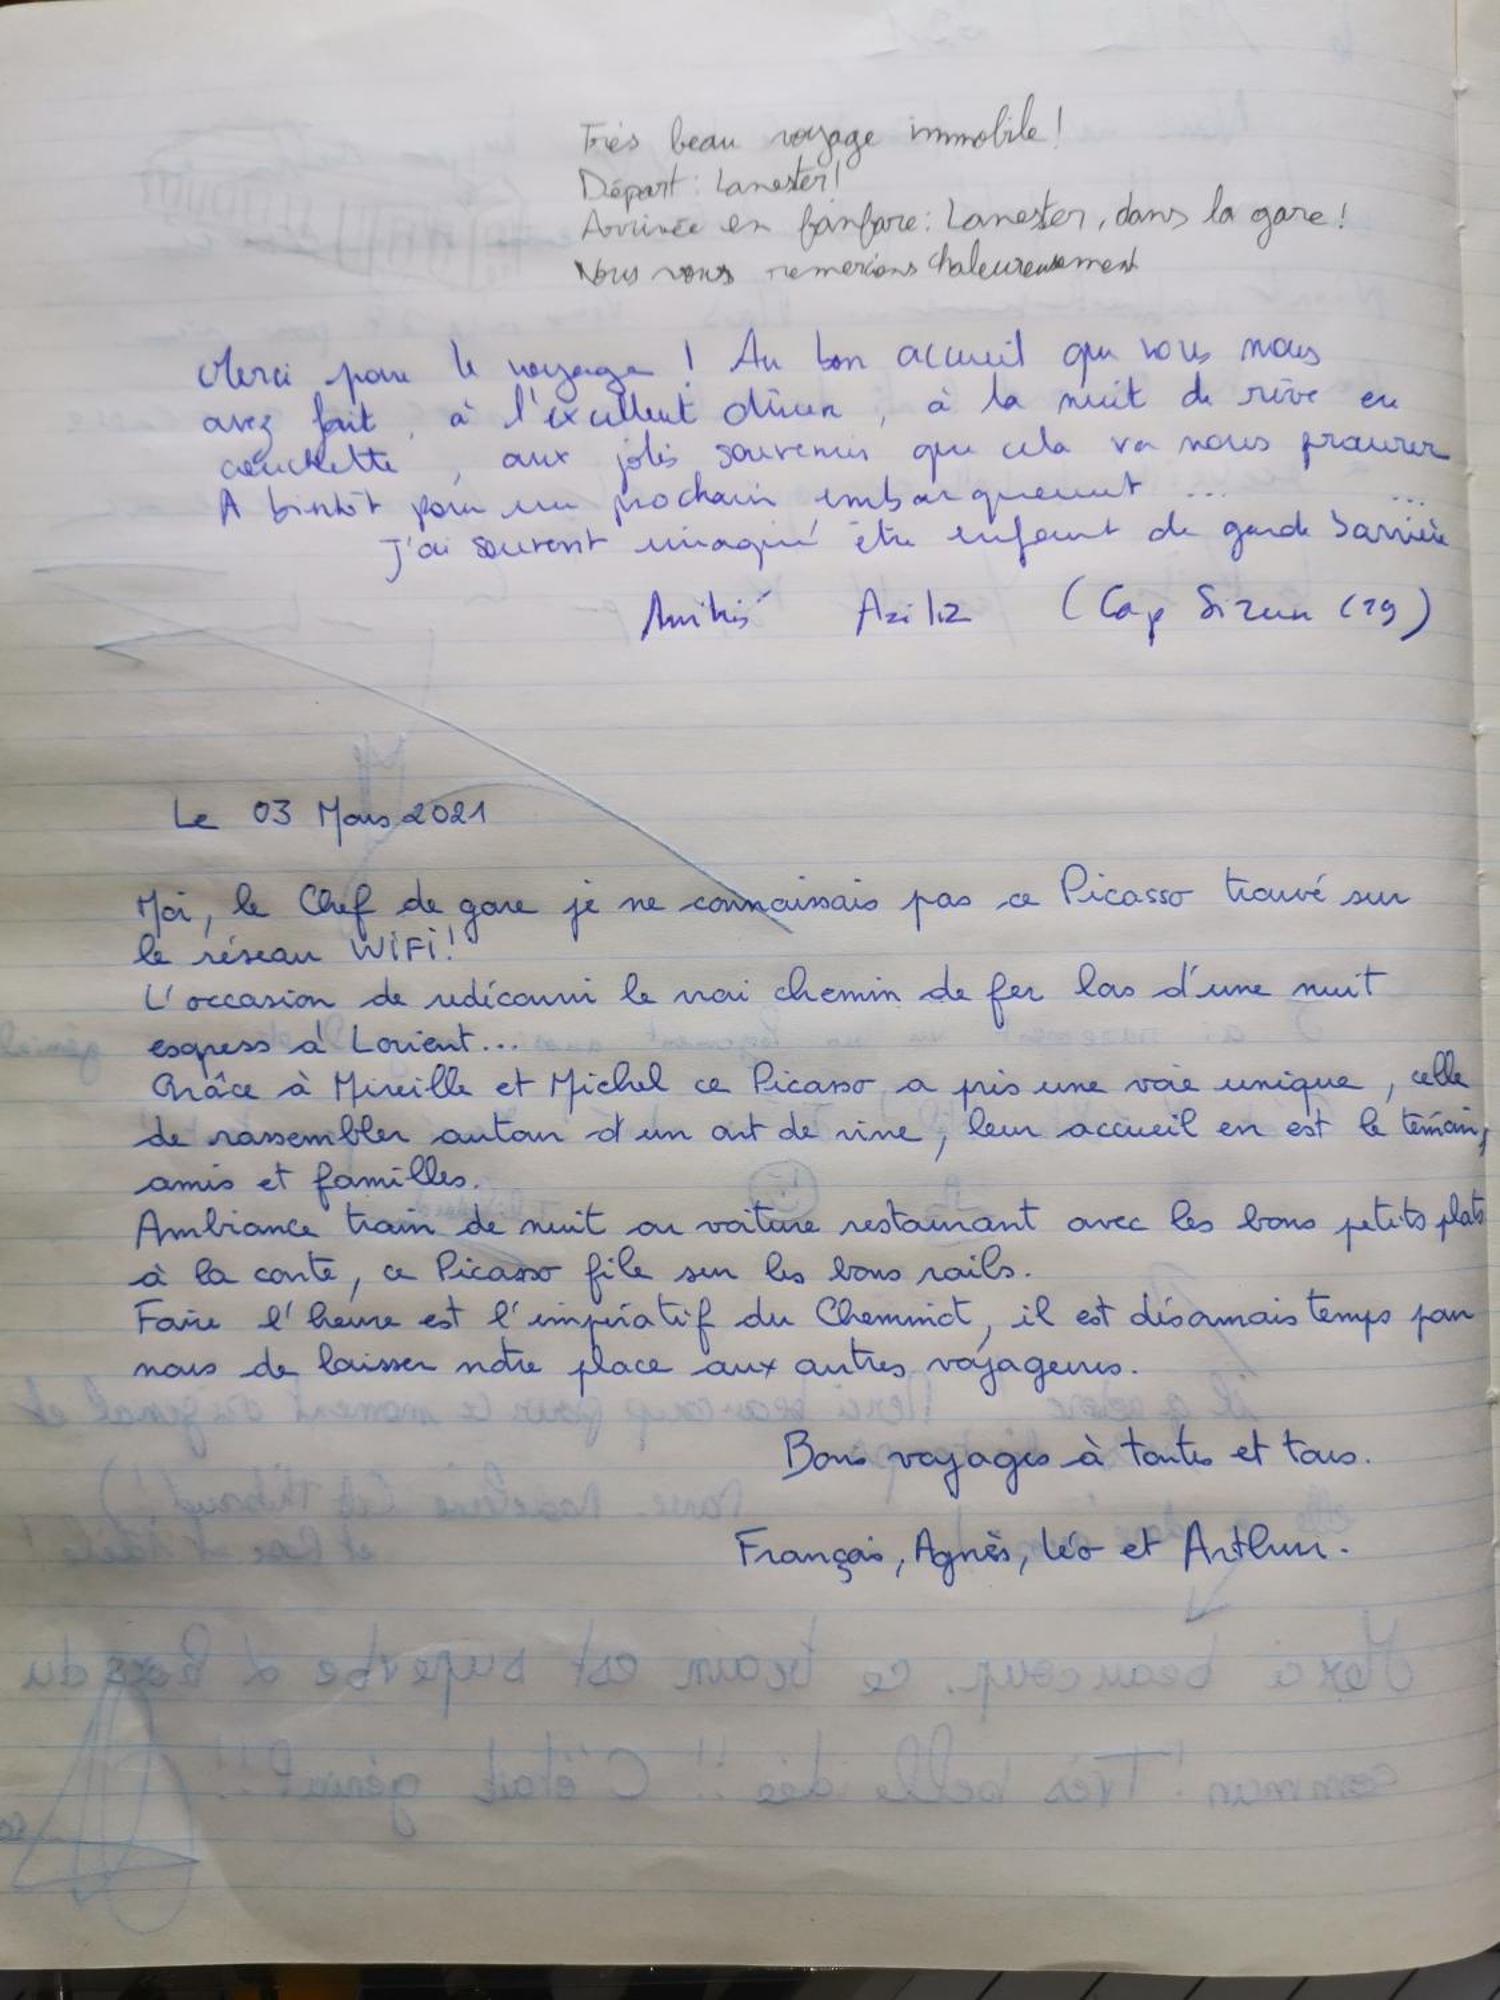 Très beau voyage immobile !
Départ : Lanester !
Arrivée en fanfare : Lanester, dans la gare !
Nous vous remercions chaleureusement
Merci pour le voyage ! Au bon accueil que vous nous
avez fait, à l'excellent dîner, à la nuit de rêve en
couchette, aux jolis souvenirs que cela va nous procurer
A bientôt pour un prochain embarquement ... ...
J'ai souvent imaginé être enfant de garde barrière
Aziliz (Cap Sizun (29)
Le 03 Mars 2021
Moi, le Chef de gare je ne connaissais pas ce Picasso trouvé sur
le réseau WiFi !
L'occasion de redécouvrir le vrai chemin de fer lors d'une nuit
express à Lorient...
Grâce à Mireille et Michel ce Picasso a pris une voie unique, celle
de rassembler autour d'un art de vivre, leur accueil en est le témoin,
amis et familles.
Ambiance train de nuit ou voiture restaurant avec les bons petits plats
à la carte, ce Picasso file sur les bons rails.
Faire l'heure est l'impératif du Cheminot, il est désormais temps pour
nous de laisser notre place aux autres voyageurs.
Bons voyages à toutes et tous.
François, Agnès, Léo et Arthur.